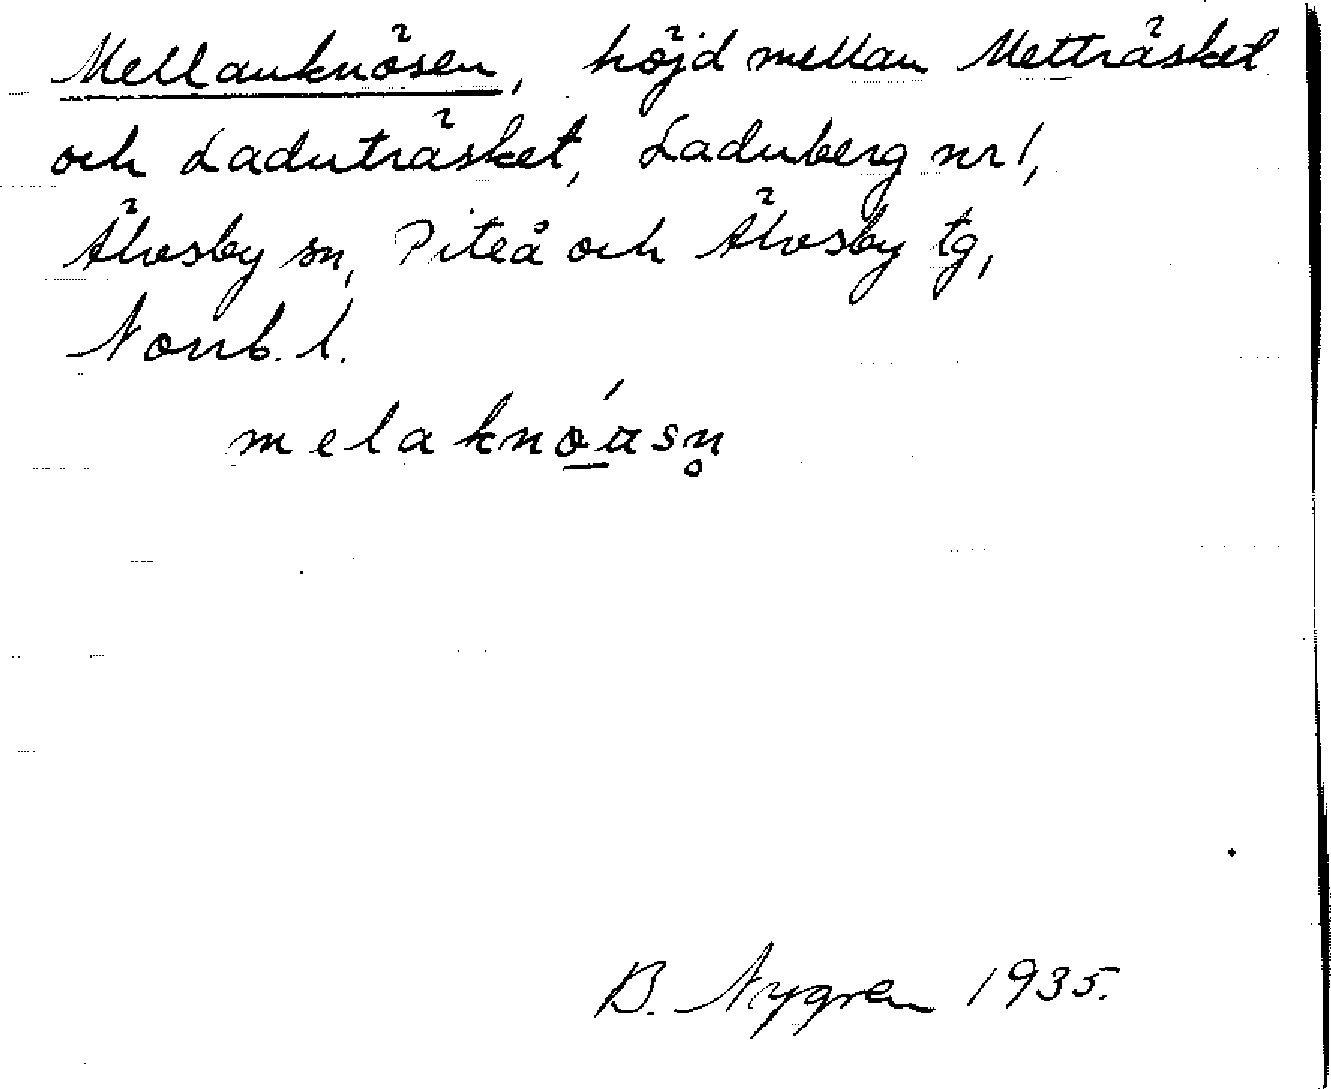 Mellanknösen, höjd mellan Metträsket
och Laduträsket, Laduberg nr 1,
Älvsby sn, Piteå och Älvsby tg,
Norrb. l.
melaknö́ɑsn̥
B. Nygren 1935.